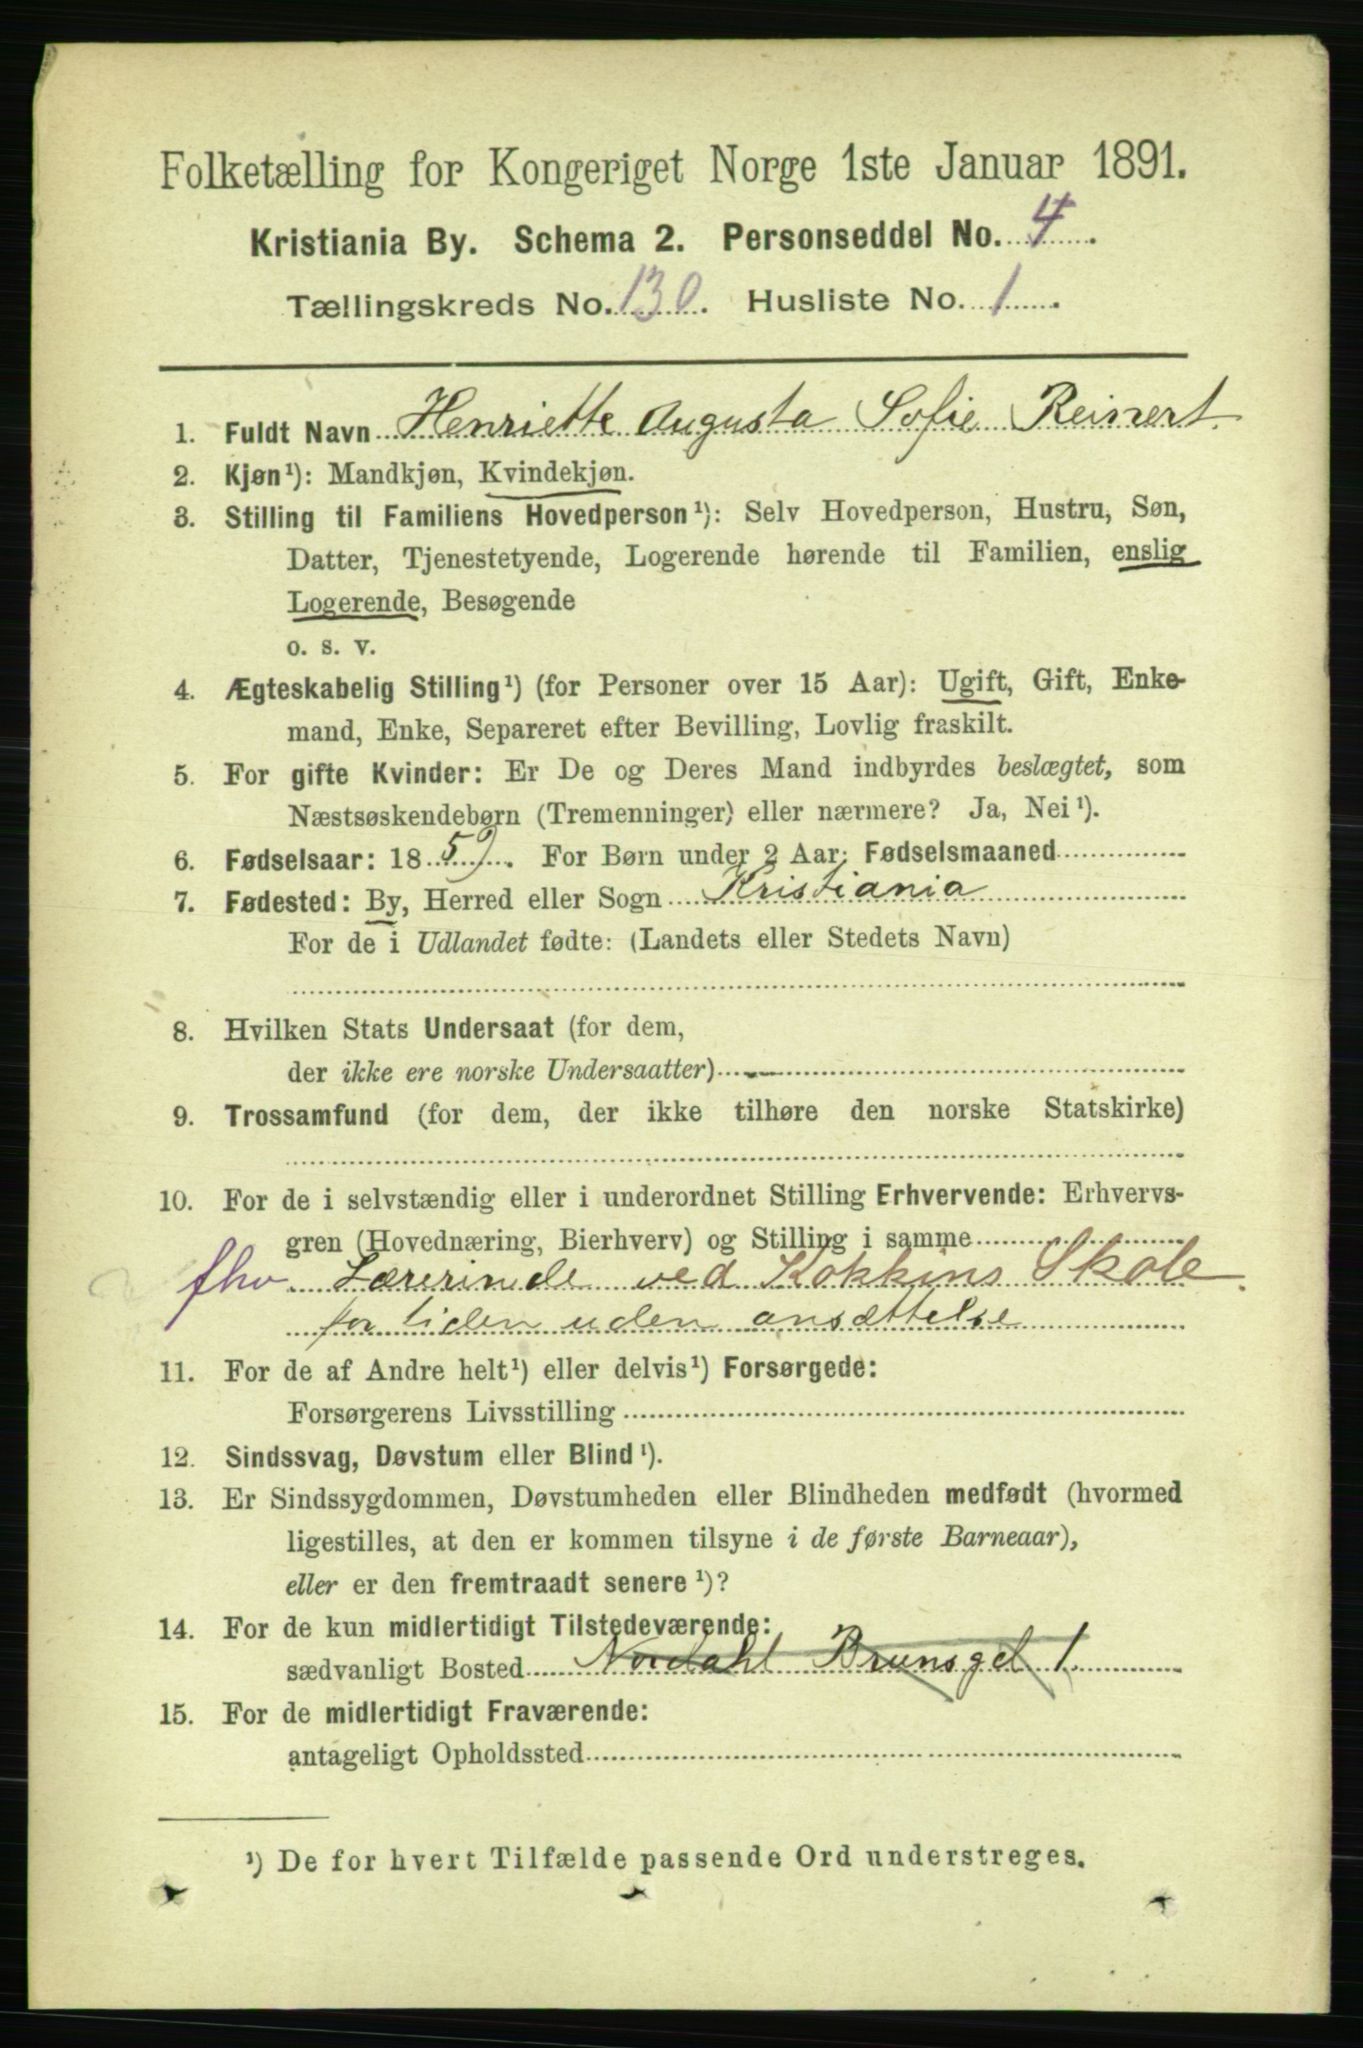 Folketælling for Kongeriget Norge 1ste Januar 1891.
Kristiania By. Schema 2. Personseddel No. 4.
Tællingskreds No. 130. Husliste No. 1.
1. Fuldt Navn Henriette Augusta Sofie Reinert.
2. Kjøn¹): Mandkjøn, Kvindekjøn.
3. Stilling til Familiens Hovedperson¹): Selv Hovedperson, Hustru, Søn,
Datter, Tjenestetyende, Logerende hørende til Familien, enslig
Logerende, Besøgende
o. s. v.
4. Ægteskabelig Stilling¹) (for Personer over 15 Aar): Ugift, Gift, Enke-
mand, Enke, Separeret efter Bevilling, Lovlig fraskilt.
5. For gifte Kvinder: Er De og Deres Mand indbyrdes beslægtet, som
Næstsøskendebørn (Tremenninger) eller nærmere? Ja, Nei¹).
6. Fødselsaar: 1859. For Børn under 2 Aar: Fødselsmaaned
7. Fødested: By, Herred eller Sogn Kristiania
For de i Udlandet fødte: (Landets eller Stedets Navn)
8. Hvilken Stats Undersaat (for dem,
der ikke ere norske Undersaatter)
9. Trossamfund (for dem, der ikke tilhøre den norske Statskirke)
10. For de i selvstændig eller i underordnet Stilling Erhvervende: Erhvervs-
gren (Hovednæring, Bierhverv) og Stilling i samme
fhv. Lærerinde ved Kokkins Skole.
for tiden uden ansættelse
11. For de af Andre helt¹) eller delvis¹) Forsørgede:
Forsørgerens Livsstilling
12. Sindssvag, Døvstum eller Blind¹).
13. Er Sindssygdommen, Døvstumheden eller Blindheden medfødt (hvormed
ligestilles, at den er kommen tilsyne i de første Barneaar),
eller er den fremtraadt senere¹)?
14. For de kun midlertidigt Tilstedeværende:
sædvanligt Bosted Nordahl Brunsgd 1.
15. For de midlertidigt Fraværende:
antageligt Opholdssted
¹) De for hvert Tilfælde passende Ord understreges.